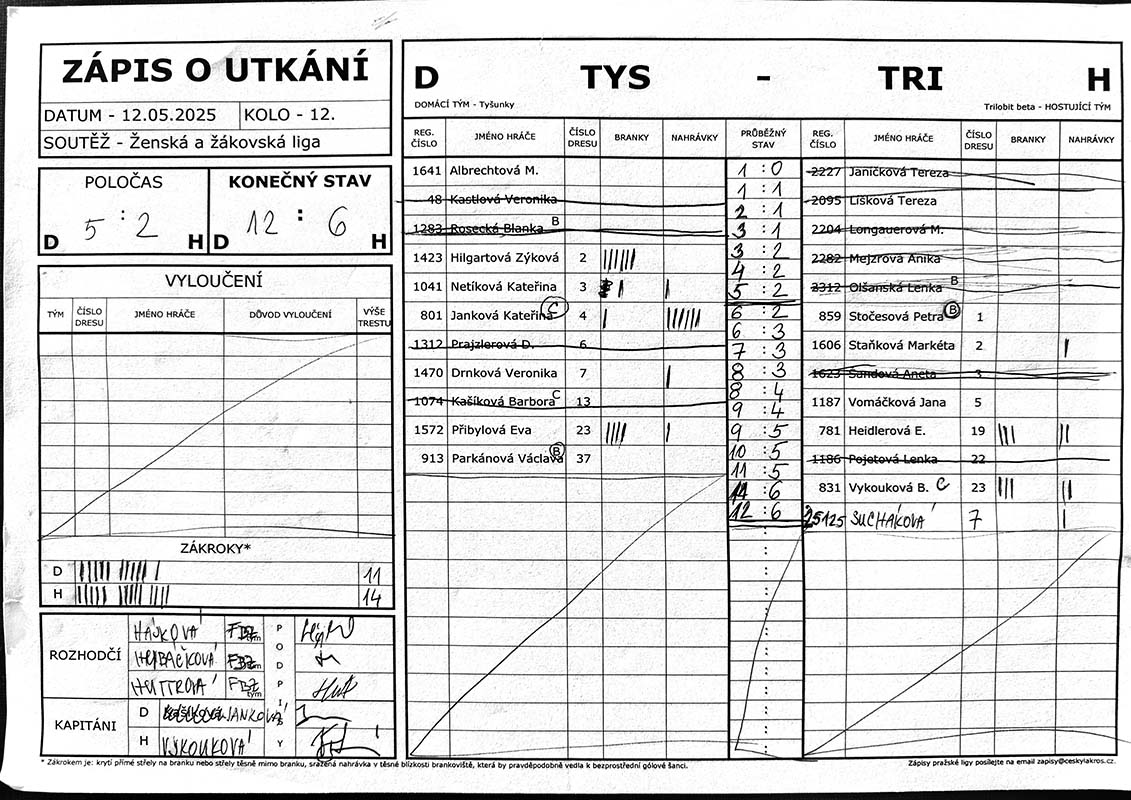 ZÁPIS O UTKÁNÍ
DATUM - 12.05.2025 KOLO - 12.
SOUTĚŽ - Ženská a žákovská liga
POLOČAS
5 : 2
D H
KONEČNÝ STAV
12 : 6
D H
VYLOUČENÍ
TÝM ČÍSLO DRESU JMÉNO HRÁČE DŮVOD VYLOUČENÍ VÝŠE TRESTU
ZÁKROKY*
D 11
H 14
ROZHODČÍ
HÁJKOVÁ FBZ tým
FBZ tým
FBZ tým
PODPISY
KAPITÁNI
D JANKOVÁ
H VYKOUKOVÁ
D TYS - TRI H
DOMÁCÍ TÝM - Tyšunky Trilobit beta - HOSTUJÍCÍ TÝM
REG. ČÍSLO JMÉNO HRÁČE ČÍSLO DRESU BRANKY NAHRÁVKY PRŮBĚŽNÝ STAV REG. ČÍSLO JMÉNO HRÁČE ČÍSLO DRESU BRANKY NAHRÁVKY
1641 Albrechtová M.
48 Kastlová Veronika
1283 Rosecká Blanka B
1423 Hilgartová Zýková 2
1041 Netíková Kateřina 3
801 Janková Kateřina C 4
1312 Prajzlerová D. 6
1470 Drnková Veronika 7
1074 Kašíková Barbora C 13
1572 Přibylová Eva 23
913 Parkánová Václava B 37
1 : 0
1 : 1
2 : 1
3 : 1
3 : 2
4 : 2
5 : 2
6 : 2
6 : 3
7 : 3
8 : 3
8 : 4
9 : 4
9 : 5
10 : 5
11 : 5
11 : 6
12 : 6
2227 Janičková Tereza
2095 Lišková Tereza
2204 Longauerová M.
2282 Mejzrová Anika
2312 Olšanská Lenka B
859 Stočesová Petra B 1
1606 Staňková Markéta 2
1623 Šundová Aneta 3
1187 Vomáčková Jana 5
781 Heidlerová E. 19
1186 Pojetová Lenka 22
831 Vykouková B. C 23
25125 SUCHÁKOVÁ 7
* Zákrokem je: krytí přímé střely na branku nebo střely těsně mimo branku, sražená nahrávka v těsné blízkosti brankoviště, která by pravděpodobně vedla k bezprostřední gólové šanci.
Zápisy pražské ligy posílejte na email zapisy@ceskylakros.cz.